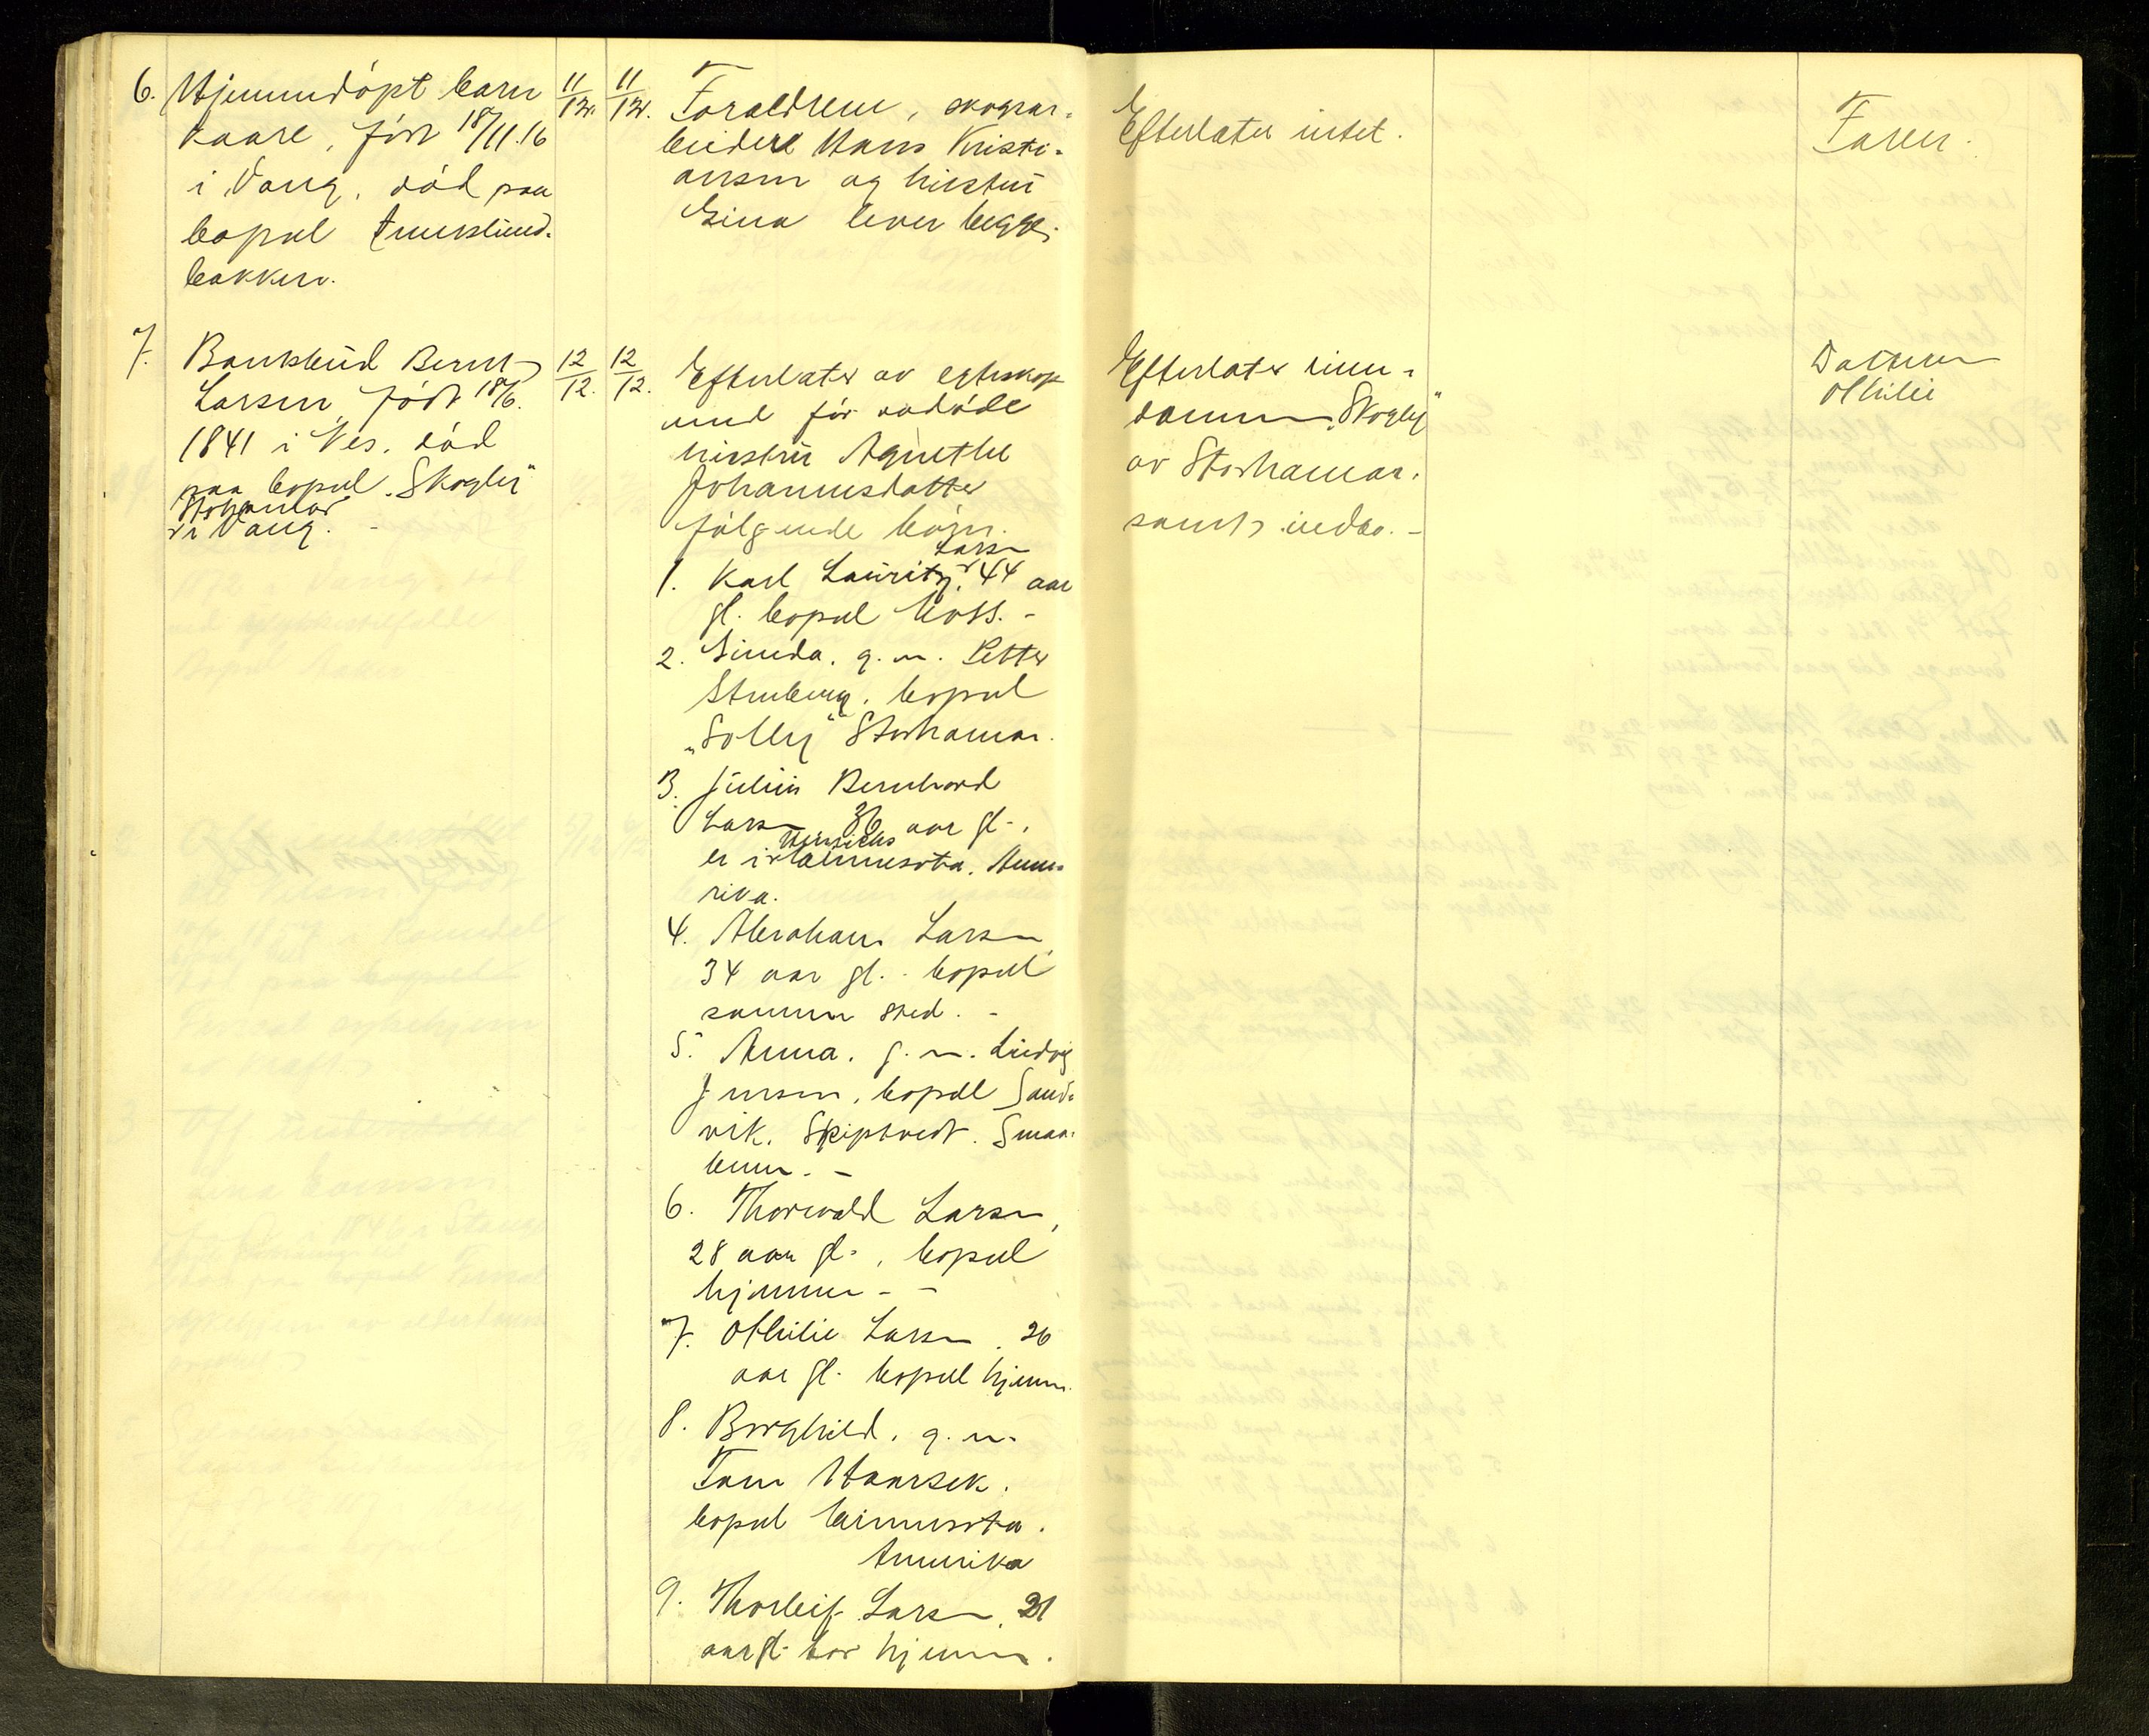 6. Hjemmedöpt barn
Kaare, född 18/11.16
i Vang, död paa
bopæl
bakken.
11/12. 11/12.
Forældrene, skogsar-
beidere Hans Kristi-
ansen og hustru
Gina lever begge.
Efterlater intet.
Faren.
7. Bankbud Bernt
Larsen, född 18/6.
1841 i Nes, död
paa bopæl "Skogly"
Storhamar
i Vang. -
12/12. 12/12.
Efterlater av egteskap
med för avdöde
hustru Agnethe
Johannesdatter
fölgende börn.
1. Karl Lauritz Larsen, 44 aar
gl. bopæl Moss. -
2. Linda, g. m. Petter
Stenberg, bopæl
"Solly" Storhamar.
3. Julius Bernhard
Larsen 36 aar gl.,
er i Minnesota, Ame-
rika.
4. Abraham Larsen,
34 aar gl. - bopæl
samme sted. -
5. Anna, g. m. Ludvig
Jensen, bopæl Sand-
vik, Skiptvedt. Smaa-
lenene. -
6. Thorvald Larsen,
28 aar gl., bopæl
hjemme. - -
7. Othilie Larsen, 26
aar gl. bopæl hjemme.
8. Borghild, g. m.
Tom
bopæl Minnesota.
Amerika
9. Thorleif Larsen, 21
aar gl. bor hjemme.
Efterlater eien-
dommen "Skogly"
av Storhamar,
samt indbo. -
Datteren
Othilie